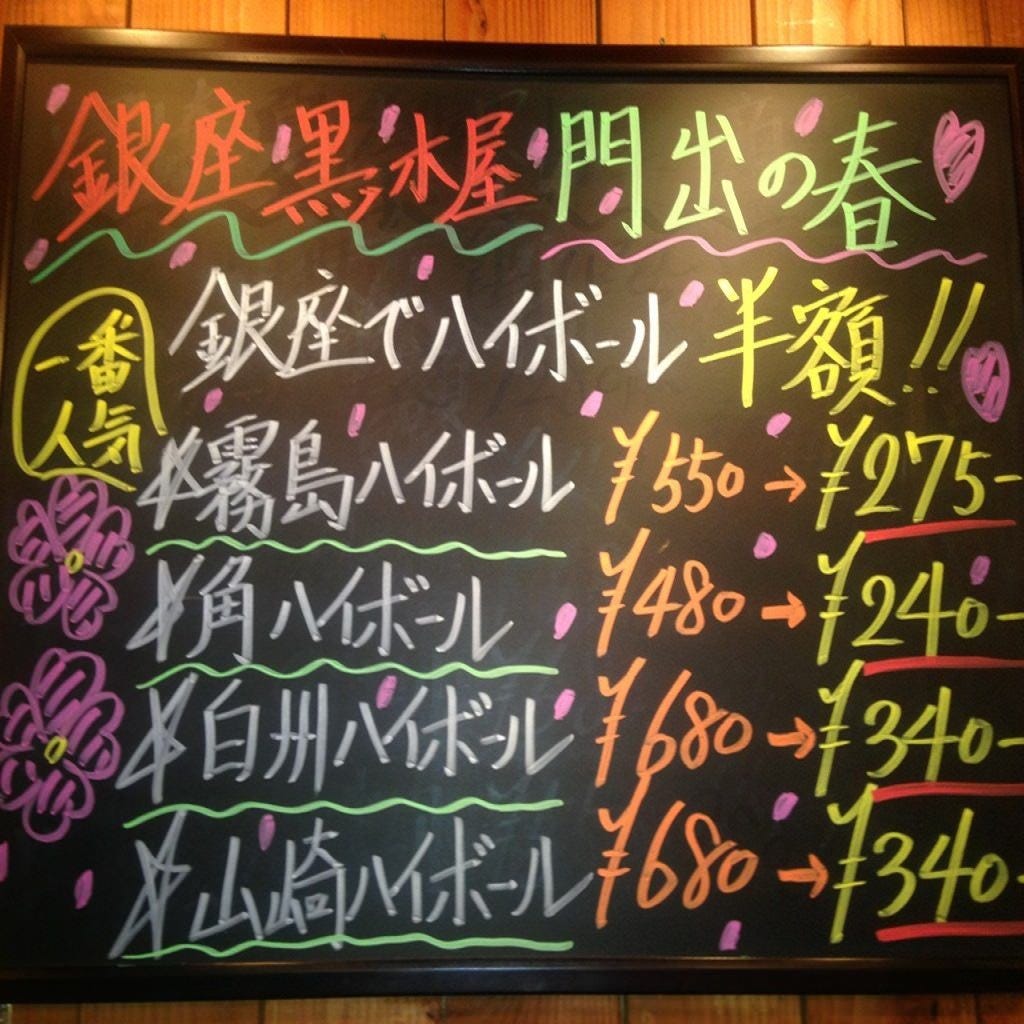 銀座黒水屋 門出の春
銀座でハイボール半額!!
一番
人気
霧島ハイボール ¥550→¥275-
角ハイボール ¥480→¥240-
白州ハイボール ¥680→¥340-
山崎ハイボール ¥680→¥340-